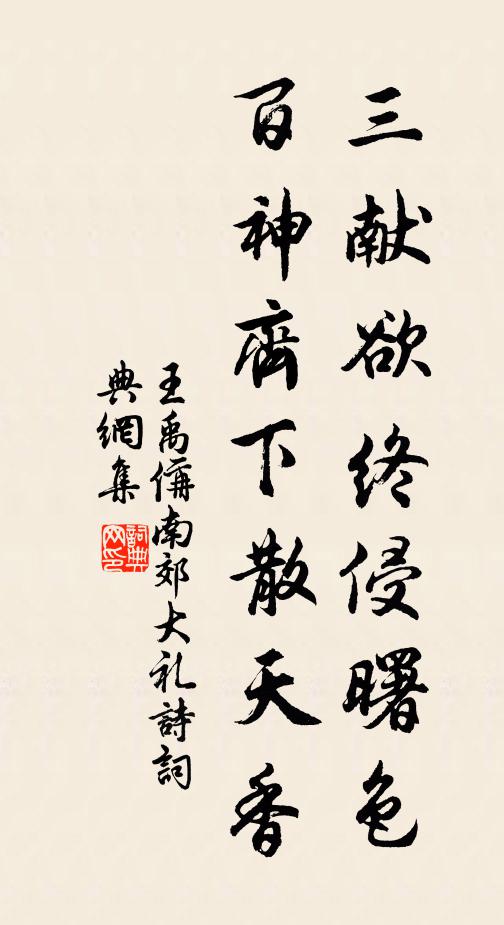 三献欲终侵曙色
百神齊下散天香
王禹偁南郊大礼詩詞
典網集
詞典
网印